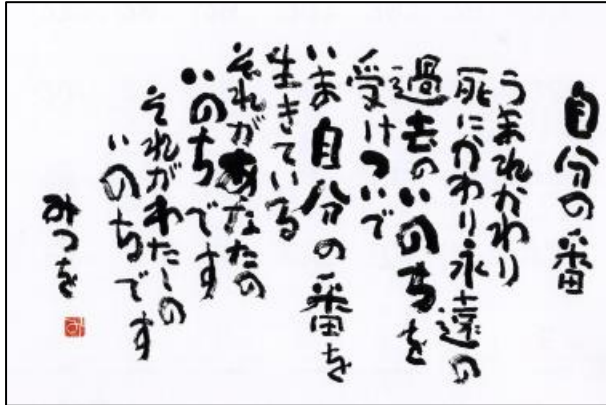 自分の番
うまれかわり
死にかわり永遠の
過去のいのちを
受けついで
いま自分の番を
生きている
それがあなたの
いのちです
それがわたしの
いのちです
みつを
み